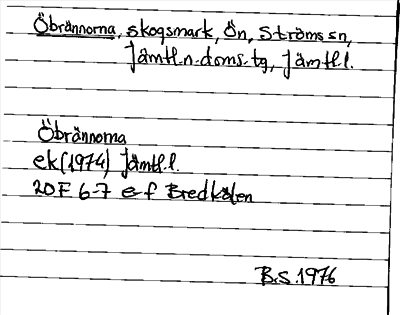 Öbrännorna, skogsmark, Ön, Ströms sn,
Jämtl.n.doms.tg, Jämtl.l.
Öbrännorna
ek (1974) Jämtl.l.
20F 6-7 e-f Bredkälen
B.S. 1976